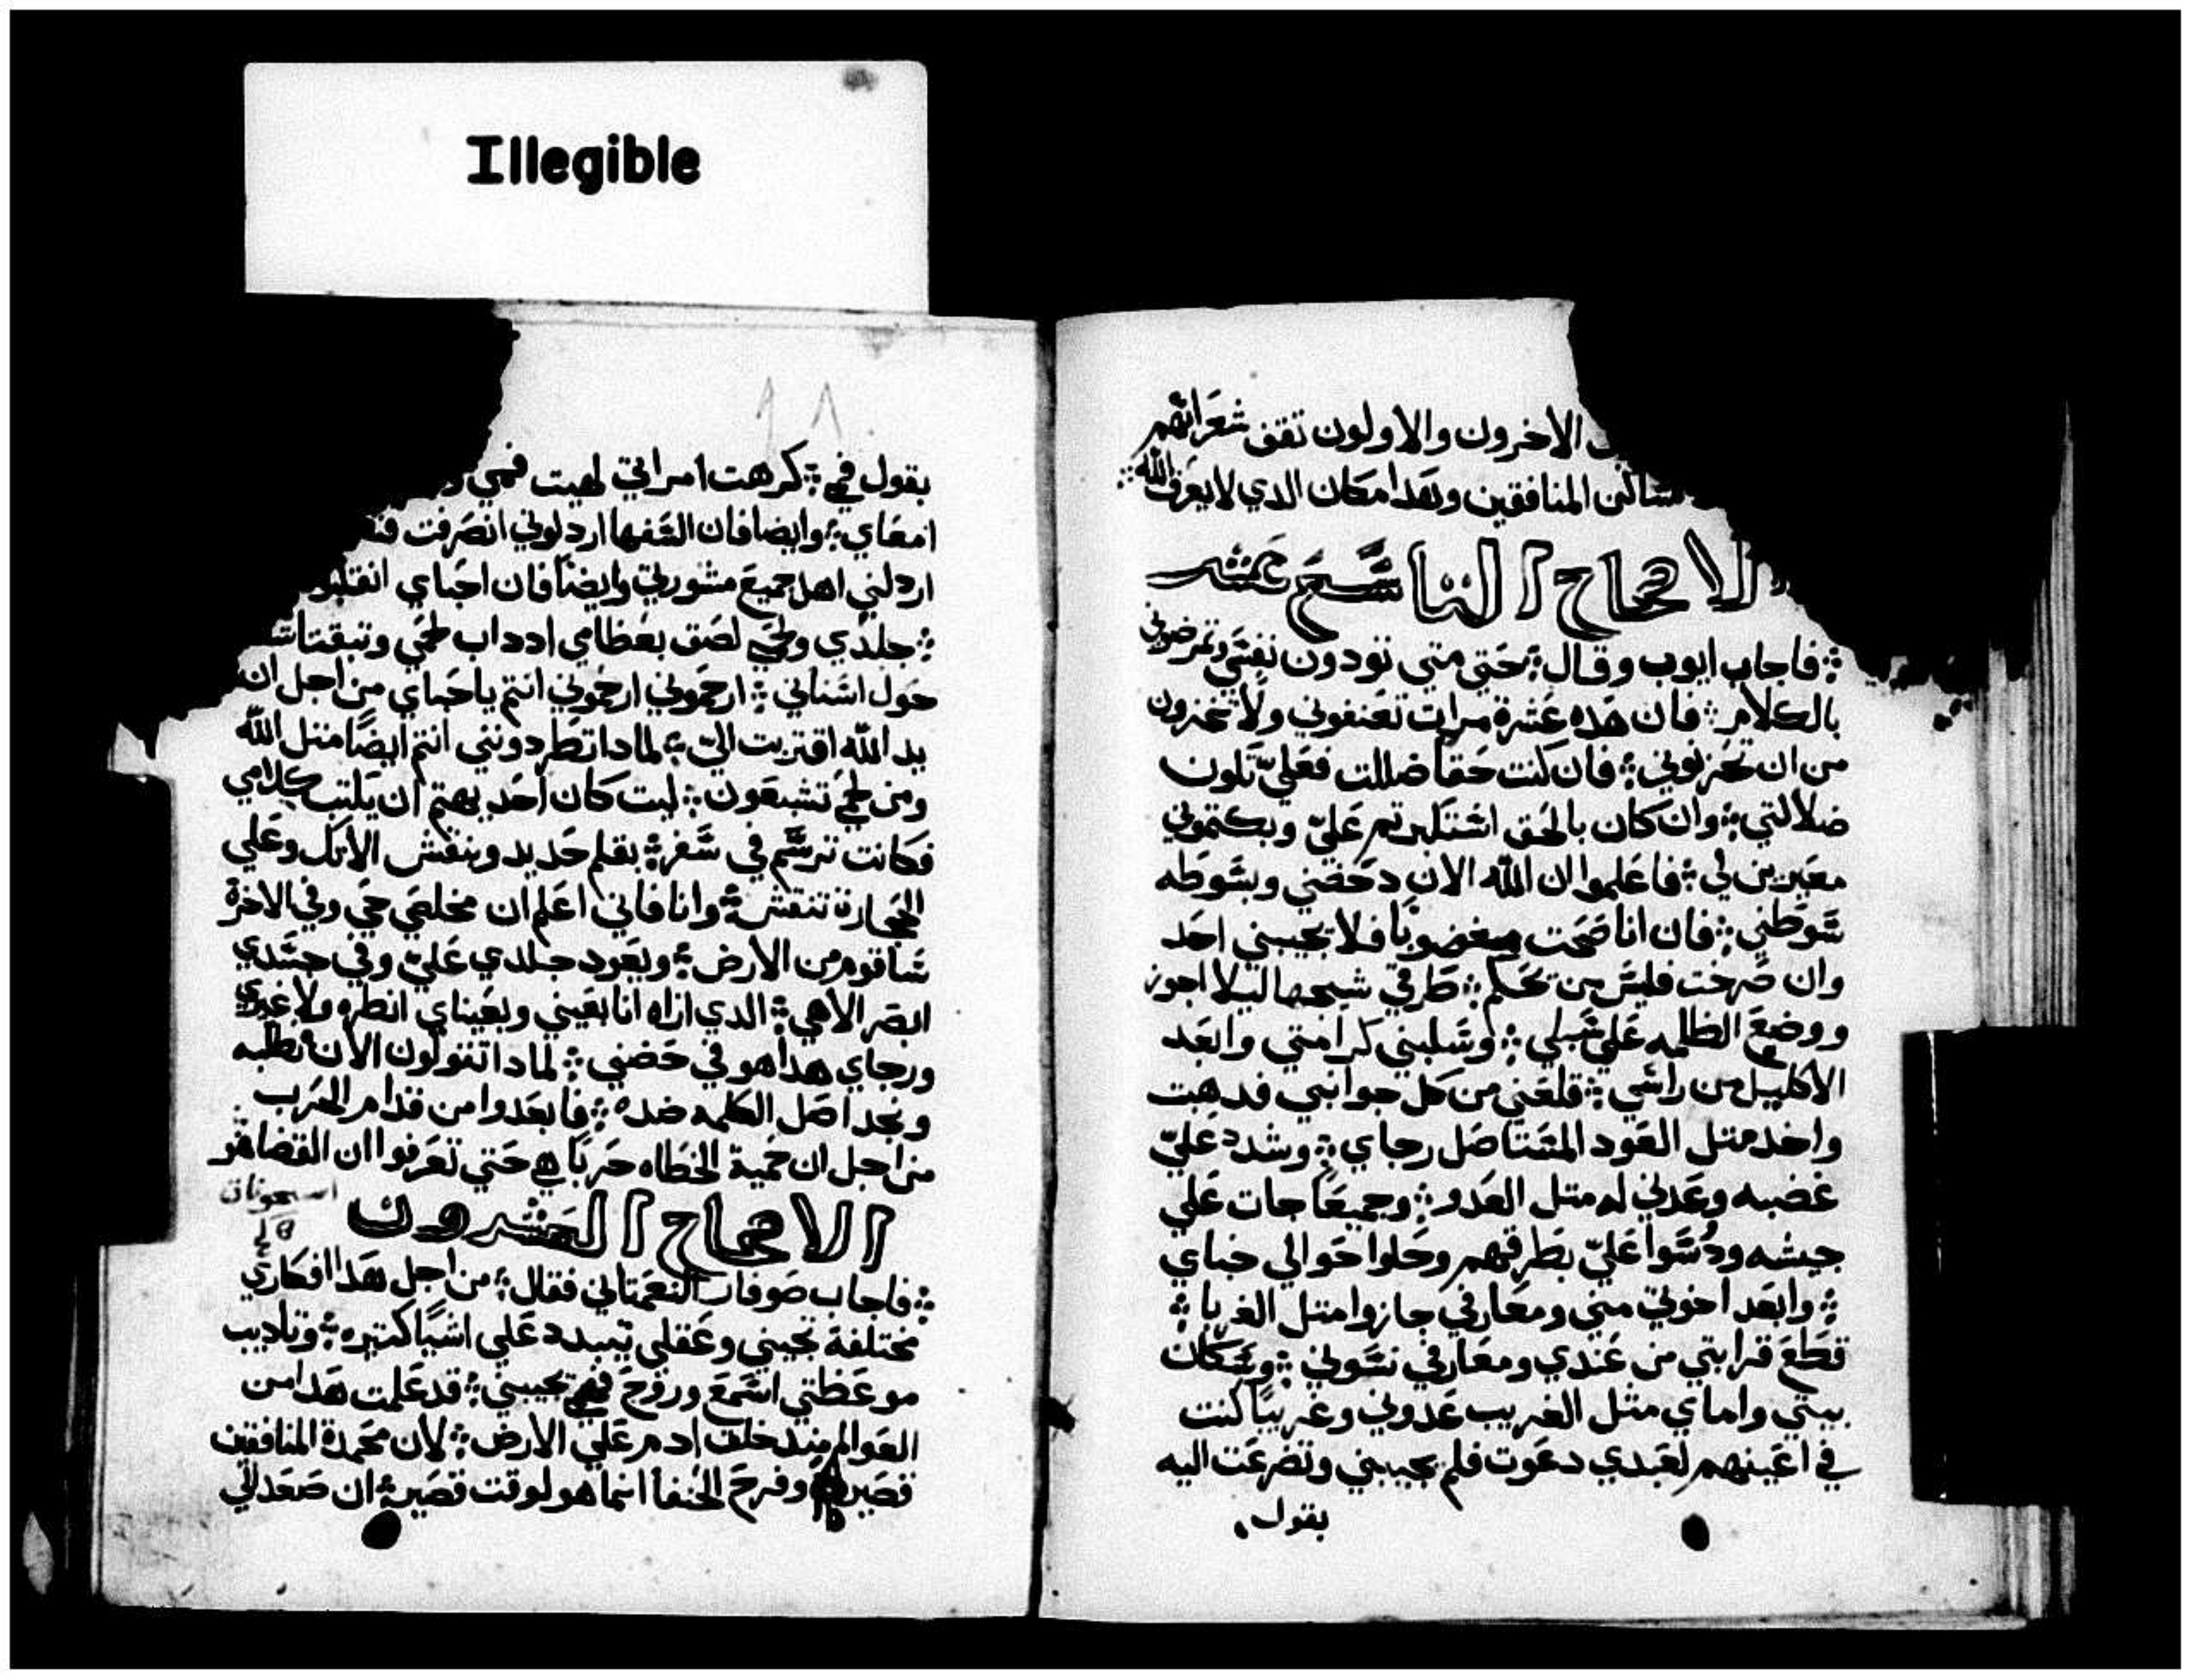 Illegible
الاخرون والاولون تقف شعراتهم
المنافقين وهدا مكان الدي لا يعرف الله
الاصحاح التاسع عشر
فاجاب ايوب وقال حتى متى تودون نفسي وتمرضوني
بالكلام فان هده عشرة مرات تعنفوني ولا تخزون
من ان تحزنوني فان كنت حقا ضللت فعليّ تكون
ضلالتي وان كان بالحق استكبرتم عليّ وبكتموني
معيرين لي فاعلموا ان الله الان دحضني وبسوطه
سوطني فان انا صحت مغضوبًا فلا تجيبني احد
وان صرخت فليس من تحكم طرقي سيجها ليلا اجوز
ووضع الظلمه علي سبلي وسلبني كرامتي وابعد
الاكليل من راسي قلعني من كل جوانبي فدهبت
واخد متل العود المستاصل رجاي وشدد عليّ
غضبه وعدني له متل العدو وجميعًا جات علي
جيشه ودُسّوا عليّ بطرقهم وحلوا حوالي خباي
وابعد اخوتي مني ومعارفي جازوا متل الغربا
قطع قرابتي من عندي ومعارفي نسوني وسكان
بيتي واماي متل الغريب عدوني وغريبًا كنت
في اعينهم لعبدي دعوت فلم يجيبني وتضرعت اليه
بقول
٩٨
بقول في كرهت امراتي لهيت فمي
امعاي وايضا فان السفها اردلوني انصرفت
اردلني اهل جميع مشورتي وايضًا فان احباي انقلبو
جلدي ولحمي لصق بعظامي ادداب لحمي وتبقتات
حول اسناني ارحموني ارحموني انتم ياحباي من اجل ان
يد الله اقتربت اليّ لمادا تطردونني انتم ايضًا متل الله
ومن لحمي تشبعون ليت كان احد يهتم ان يكتب كلامي
فكانت ترسم في سفر بقلم حديد وينقش الانك وعلي
الحجارة تنقش وانا فاني اعلم ان مخلصي حي وفي الاخرة
ساقوم من الارض ويعود جلدي عليّ وفي جسدي
ابصر الاهي الدي اراه انا بعيني وبعيناي انظره ولا غيري
ورجاي هدا هو في حضني لمادا تتولون الان نطلبه
ونجد اصل الكلمه ضده فابعدوا من قدام الحرب
من اجل ان حمية الخطاه حربًا هي حتي تعرفوا ان القضا هو
الاصحاح العشرون
فاجاب صوفار النعمتاني فقال من اجل هدا افكاري
مختلفة تجيبني وعقلي يتبدد علي اشيا كتيره وتاديب
موعظتي اسمع وروح فهم تجيبني قد علمت هدا من
العوالم مند خلق ادم علي الارض لان محمدة المنافقين
قصيره وفرح الحنفا انما هو لوقت قصير ان صعد الي